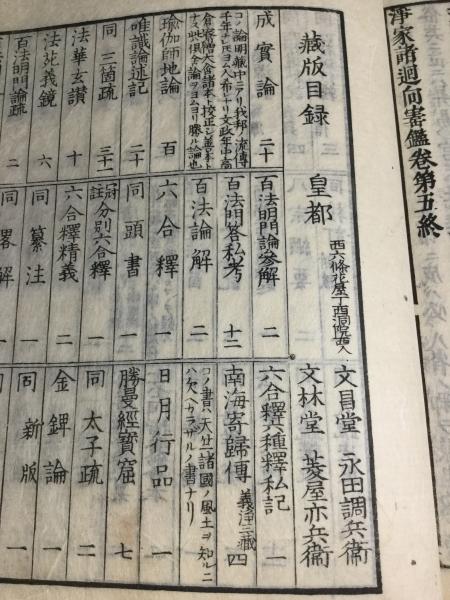 淨家諸迴向寶鑑卷第五終
藏版目録 皇都 西六條花屋丁西洞院西入
文昌堂 永田調兵衞
文林堂 菱屋亦兵衞
成實論 二十
コノ論明藏中ニアリ我邦ノ流傳
瑜伽師地論 百
唯識論述記 二十
同三箇疏 三十一
法華玄讃 十
法苑義鏡 六
百法明門論疏 二
百法明門論參解 二
百法問答私考 十二
百法論解 二
六合釋 一
同頭書 一
冠註分別六合釋 一
六合釋精義 二
同纂注 一
同畧解 一
六合釋六種釋私記 一
南海寄歸傳 義淨三藏 四
コノ書ハ天竺諸國ノ風土ヲ知ルニ
ハ欠ベカラザルノ書ナリ
日月行品 一
勝曼經寶窟 七
同太子疏 二
金錍論 一
同新版 一